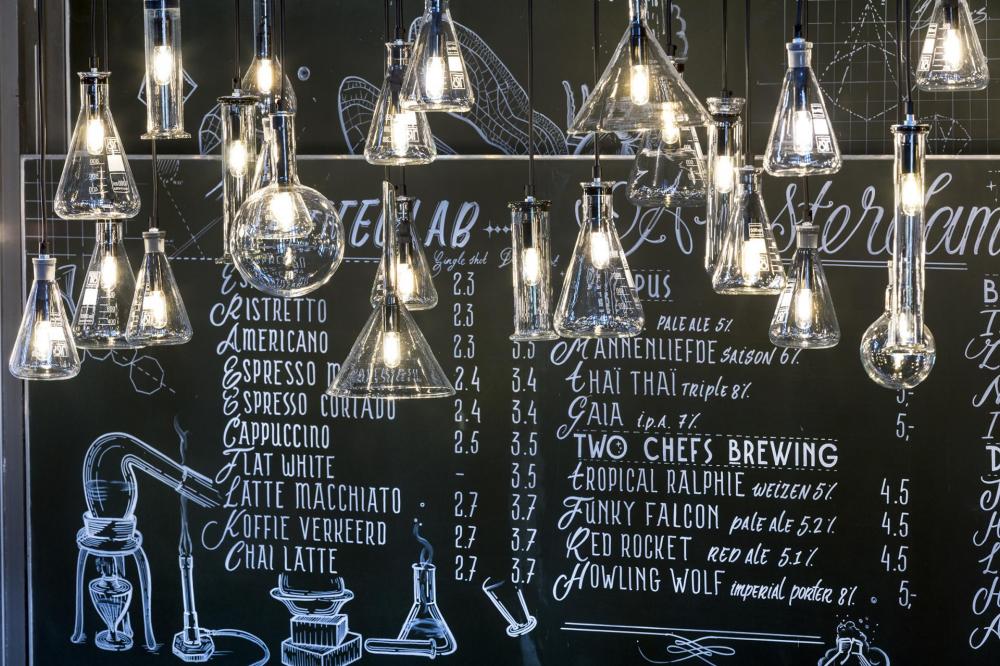 LAB
Single shot
Ristretto
Americano
Espresso
Espresso Cortado
Cappuccino
Flat White
Latte Macchiato
Koffie Verkeerd
Chai Latte
2.3
2.3
2.3
2.4
2.4
2.5
–
2.7
2.7
2.7
3.3
3.4
3.4
3.5
3.5
3.7
3.7
3.7
PALE ALE 5%
Mannenliefde SAISON 6%
Thaï Thaï TRIPLE 8%
Gaia I.P.A. 7%
5,-
TWO CHEFS BREWING
Tropical Ralphie WEIZEN 5% 4.5
Funky Falcon PALE ALE 5.2% 4.5
Red Rocket RED ALE 5.1% 4.5
Howling Wolf IMPERIAL PORTER 8% 5,-